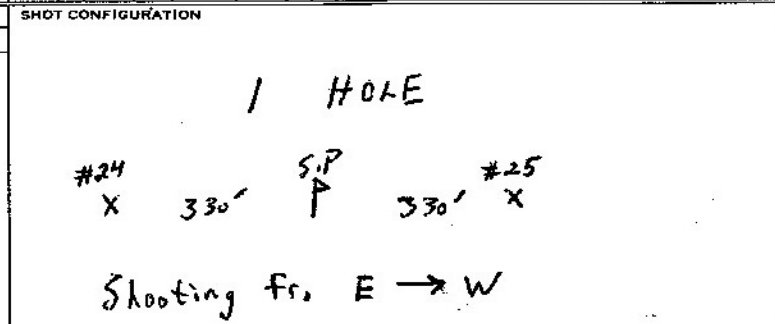 SHOT CONFIGURATION
1 HOLE
#24 S.P #25
X 330' P 330' X
Shooting fr. E → W